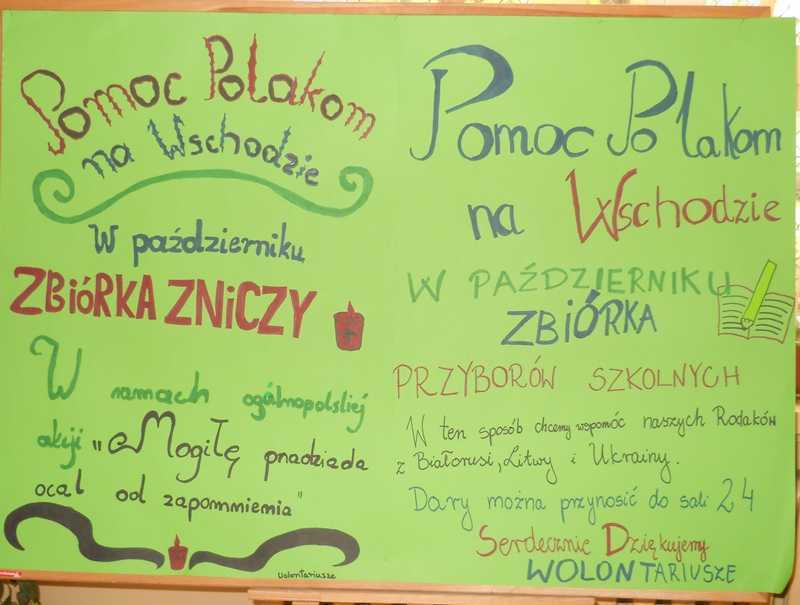 Pomoc Polakom
na Wschodzie
W październiku
ZBIÓRKA ZNICZY
W ramach ogólnopolskiej
akcji "Mogiłę pradziada
ocal od zapomnienia"
Wolontariusze
Pomoc Polakom
na Wschodzie
W PAŹDZIERNIKU
ZBIÓRKA
PRZYBORÓW SZKOLNYCH
W ten sposób chcemy wspomóc naszych Rodaków
z Białorusi, Litwy i Ukrainy.
Dary można przynosić do sali 24
Serdecznie Dziękujemy
WOLONTARIUSZE